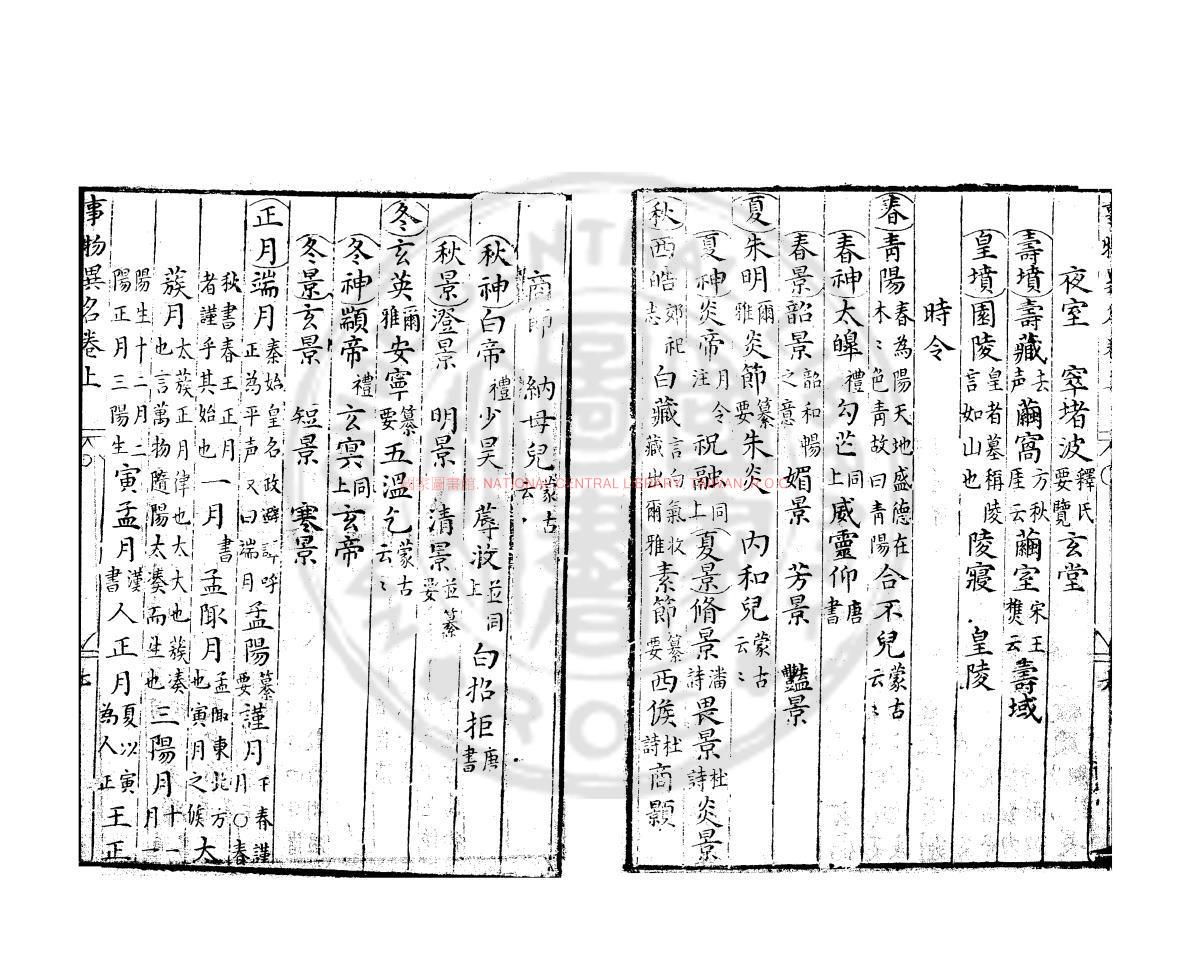 夜室 窣堵波釋氏要覽玄堂
壽墳壽藏去声繭窩方秋厓云繭室宋王樵云壽域
皇墳園陵皇者墓稱陵言如山也 陵寢 皇陵
時令
春青陽春為陽天地盛德在木木色青故曰青陽合不兒蒙古云云
春神太皥禮勾芒同上威靈仰唐書
春景韶景韶和暢之意媚景 芳景 豔景
夏朱明爾雅炎節纂要朱炎 內和兒蒙古云云
夏神炎帝月令注祝融同上夏景脩景潘詩畏景杜詩炎景
秋西皓郊祀志白藏言白氣收藏出爾雅素節纂要西候杜詩商顥
商節 納母兒蒙古云
秋神白帝禮少昊 蓐收並同上白招拒唐書
秋景澄景 明景 清景並纂要
冬玄英爾雅安寧纂要五溫乞蒙古云云
冬神顓帝禮玄冥同上玄帝
冬景玄景 短景 寒景
正月端月秦始皇名政避諱呼正為平声又曰端月孟陽纂要謹月春謹
秋書春王正月者謹乎其始也一月書孟陬月孟陬東北方也寅月之候大
蔟月太蔟正月律也大大也蔟湊也言萬物隨陽太湊而生也三陽月十一月一
陽生十二月二陽正月三陽生寅孟月漢書人正月夏以寅為人正王正
事物異名卷上
國家圖書館, NATIONAL CENTRAL LIBRARY, TAIWAN, R.O.C.